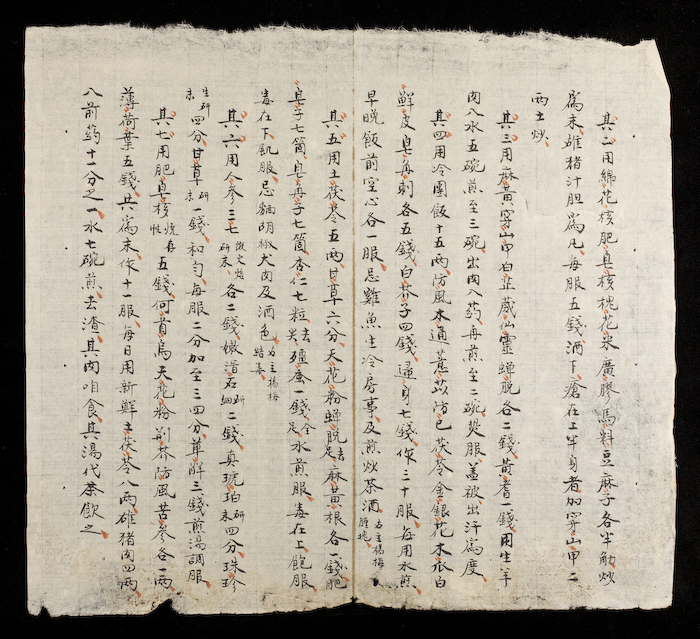 其二用綿花核肥皂核槐花米廣膠馬料豆麻子各半觔炒
為末雄猪汁胆為丸每服五錢酒下瘡在上半身者加穿山甲二
両土炒
其三用麻黄穿山甲白芷葳仙靈蟬脫各二錢黄耆一錢用生羊
肉八水五碗煎至三碗出肉入藥再煎至二碗熱服蓋被出汗為度
其四用冷團飯十五両防風木通薏苡防已茯苓金銀花木瓜白
鮮皮皂角刺各五錢白芥子四錢歸身七錢作三十服每用水煎
早晚飯前空心各一服忌雞魚生冷房事及煎炒茶酒右主楊梅腫塊
其五用土茯苓五両甘草六分天花粉蟬脫去足麻黄根各一錢肥
皂子七箇皂角子七箇杏仁七粒去尖殭蚕一錢全足水煎服毒在上飽服
毒在下飢服忌麵胡椒犬肉及酒色右主楊梅結毒
其六用人參三七微火焙研末各二錢嫩滑石研細二錢真琥珀研四分珠珍
生研末四分甘草研末一錢和勻每服二分加至三四分萆薢三錢煎湯調服
其七用肥皂核燒存性五錢何首烏天花粉荆芥防風苦參各一両
薄荷葉五錢共為末作十一服每日用新鮮土茯苓八両雄猪肉四両
入前葯十一分之一水七碗煎去渣其肉咱食其湯代茶飲之